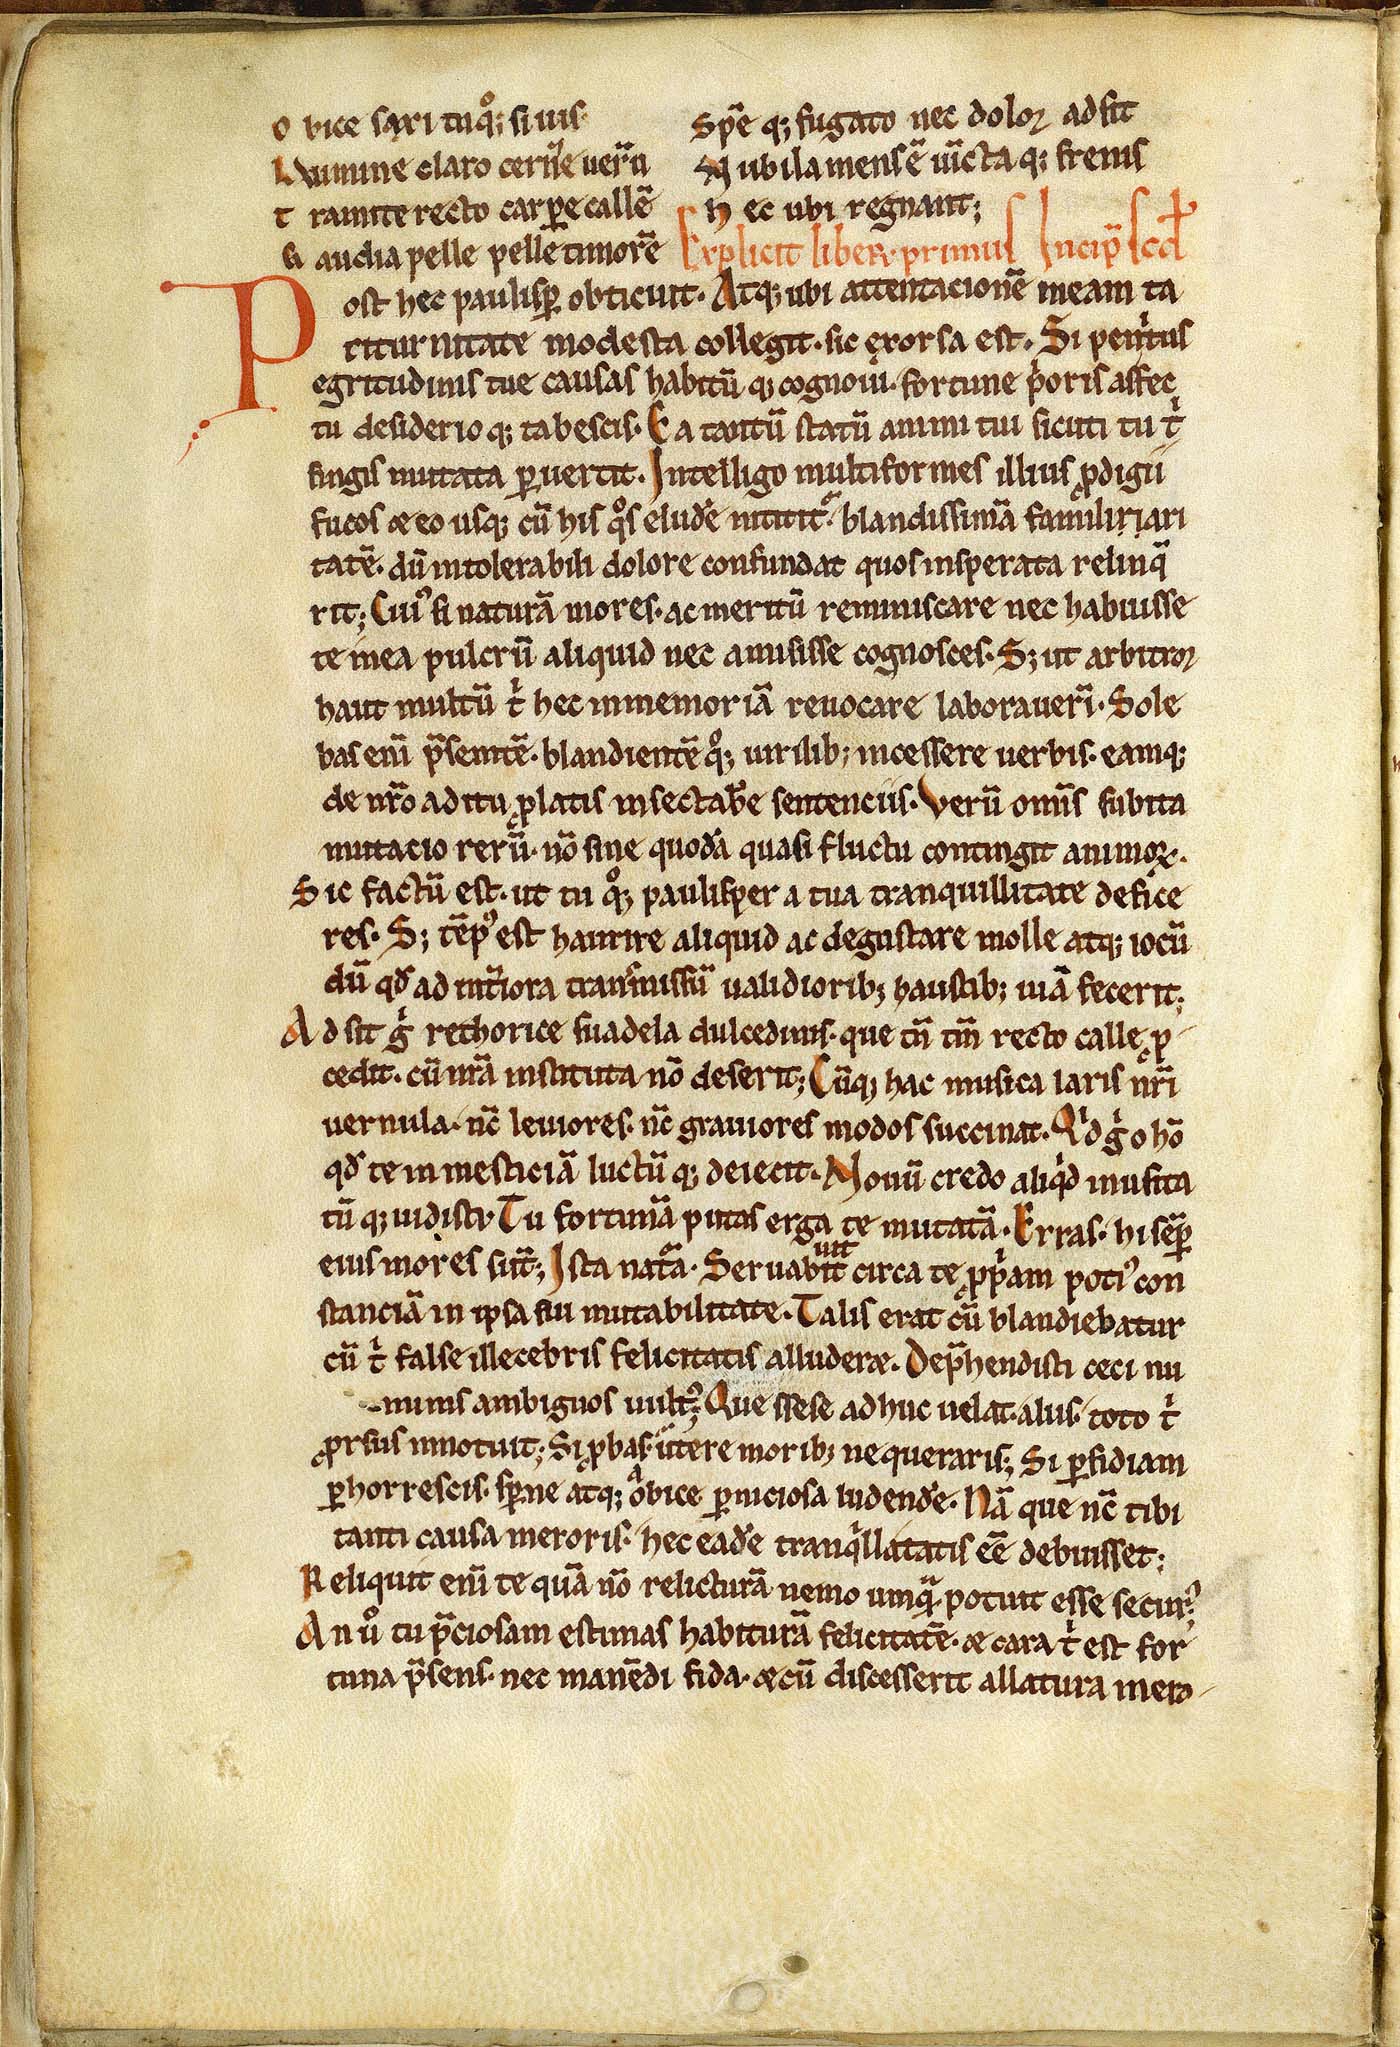 O bice saxi tu qͦꝫ si uis·
L umine claro cern̅e ueru̅
t ramite recto carpe̅ calle̅
G audia pelle pelle̅ timore̅
Spe̅ qꝫ fugato nec dolor adsit
N ubila mens e̅ uīcta qꝫ frenis
h ec ubi regnant;
Explicit liber primus Incip̅ scd̅
Post hec paulisꝑ obticuit· Atqꝫ ubi attentacione̅ meam ta
citurnitate modesta collegit· sic exorsa est· Si penit̾us
egritudinis tue causas habitu̅ qꝫ cognoui· fortune pͥoris affec
tu desiderio qꝫ tabescis· Ea tantu̅ statu̅ animi tui sicuti tu tͥ
fingis mutata ꝑuertit· Intelligo multiformes illius ꝓdigii
fucos & eo usqꝫ cu̅ his qͦs elude̅ nititᷓ· blandissima̅ familiriari
tate̅· du̅ intolerabili dolore confundat quos insperata relinq̅
rit; Cui᾽ si natura̅ mores· ac meritu̅ reminiscare nec habuisse
te in ea pulcru̅ aliquid nec amisisse cognosces· Sꝫ ut arbitror
haut multu̅ tͥ hec in memoria̅ reuocare laborauerī· Sole
bas eni̅ p̅sente̅· blandiente̅ qͦꝫ uirilibꝫ incessere uerbis· eamqꝫ
de nr̅o aditu ꝓlatis insectab̅e sentenciis· Veru̅ omīs subita
mutacio reru̅· no̅ sine quoda̅ quasi fluctu contingit animoꝝ·
Sic factu̅ est· ut tu qͦꝫ paulisper a tua tranquillitate defice
res· Sꝫ te̅p᾽ est haurire aliquid ac degustare molle atqꝫ iocu̅
du̅ qd̅ ad int̾iora transmissu̅ ualidioribꝫ haustibꝫ uia̅ fecerit;
Adsit gͥ rethorice suadela dulcedinis· que tu̅ tm̅ recto calle ꝓ
cedit· cu̅ nr̅a instituta no̅ deserit; Cu̅qꝫ hac musica laris nr̅i
uernula· nc̅ leuiores· nc̅ grauiores modos succinat· Qͥd gͥ o ho̅
qd̅ te in mesticia̅ luctu̅ qꝫ deiecit· Nouu̅ credo aliqͥd inusita
tu̅ qꝫ uidisti· Tu fortuna̅ putas erga te mutata̅· Erras· hi se̅ꝑ
eius mores su̅t; Ista nat̅a· Seruabit uit circa te ꝓpͥam poti᾽ con
stancia̅ in ipsa sui mutabilitate· Talis erat cu̅ blandiebatur
cu̅ tͥ false illecebris felicitatis alluder&· Dep̅hendisti ceci nu
minis ambiguos uult᾽; Que ssese adhuc uelat aliis· toto tͥ
ꝓrsus innotuit; Si ꝓbas· utere moribꝫ ne queraris; Si ꝑfidiam
ꝑhorrescis· sꝑne atqꝫ aobice ꝑniciosa ludende̅· Na̅ que nc̅ tibi
tanti causa meroris· hec eade̅ tranqͥllatatis ee̅ debuisset;
Reliquit eni̅ te qua̅ no̅ relictura̅ nemo umqᷓ potuit esse secur᾽;
An uͦ tu p̅ciosam estimas habitura̅ felicitate̅· & cara tͥ est for
tuna p̅sens· nec mane̅di fida· & cu̅ discesserit allatura mero